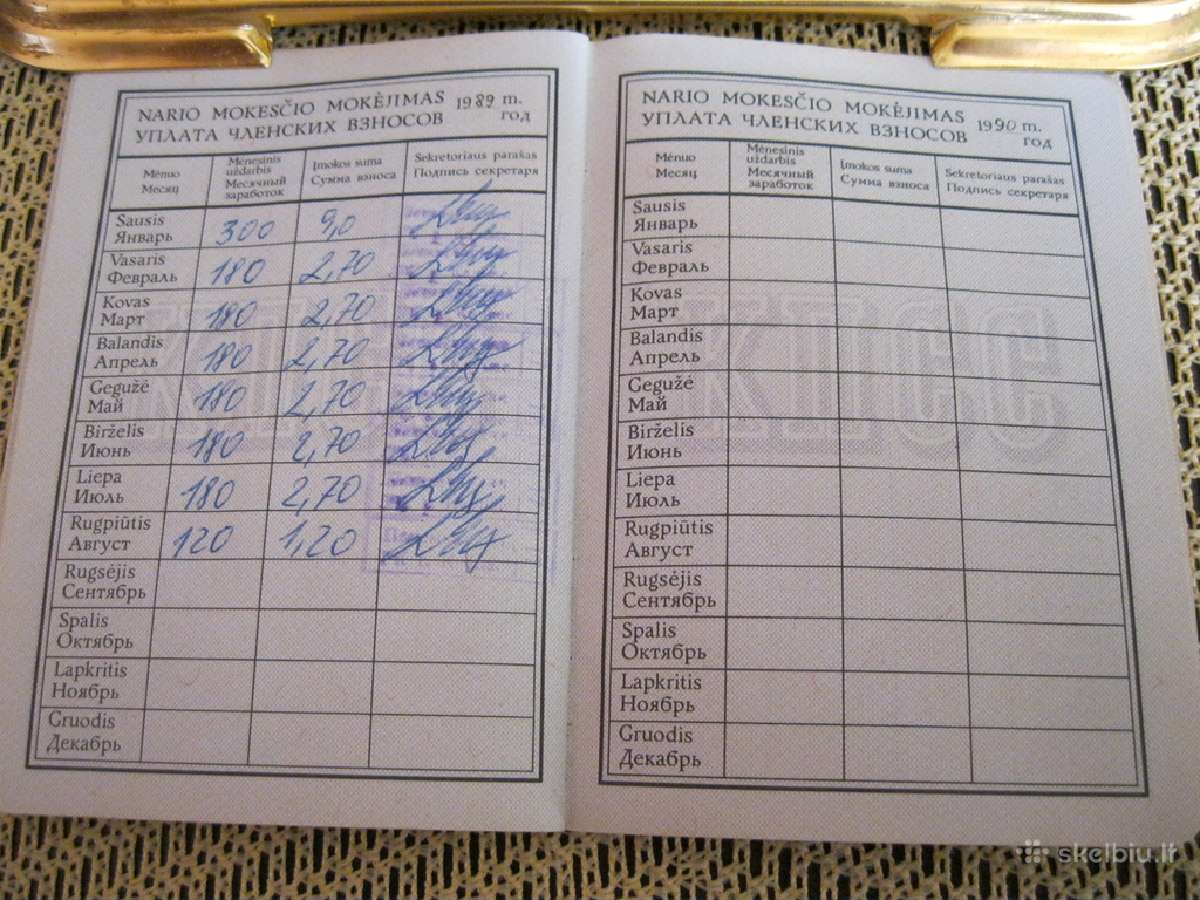 NARIO MOKESČIO MOKĖJIMAS 1989 m.
УПЛАТА ЧЛЕНСКИХ ВЗНОСОВ год
Mėnuo
Месяц
Mėnesinis
uždarbis
Месячный
заработок
Įmokos suma
Сумма взноса
Sekretoriaus parašas
Подпись секретаря
Sausis
Январь 300 9,0
Vasaris
Февраль 180 2,70
Kovas
Март 180 2,70
Balandis
Апрель 180 2,70
Gegužė
Май 180 2,70
Birželis
Июнь 180 2,70
Liepa
Июль 180 2,70
Rugpiūtis
Август 120 1,20
Rugsėjis
Сентябрь
Spalis
Октябрь
Lapkritis
Ноябрь
Gruodis
Декабрь
NARIO MOKESČIO MOKĖJIMAS 1990 m.
УПЛАТА ЧЛЕНСКИХ ВЗНОСОВ год
Mėnuo
Месяц
Mėnesinis
uždarbis
Месячный
заработок
Įmokos suma
Сумма взноса
Sekretoriaus parašas
Подпись секретаря
Sausis
Январь
Vasaris
Февраль
Kovas
Март
Balandis
Апрель
Gegužė
Май
Birželis
Июнь
Liepa
Июль
Rugpiūtis
Август
Rugsėjis
Сентябрь
Spalis
Октябрь
Lapkritis
Ноябрь
Gruodis
Декабрь
skelbiu.lt